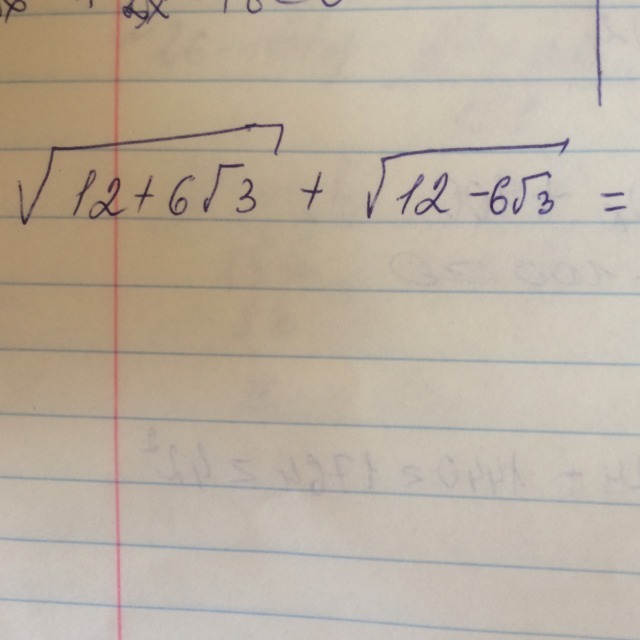 √(12+6√3) + √(12-6√3) =